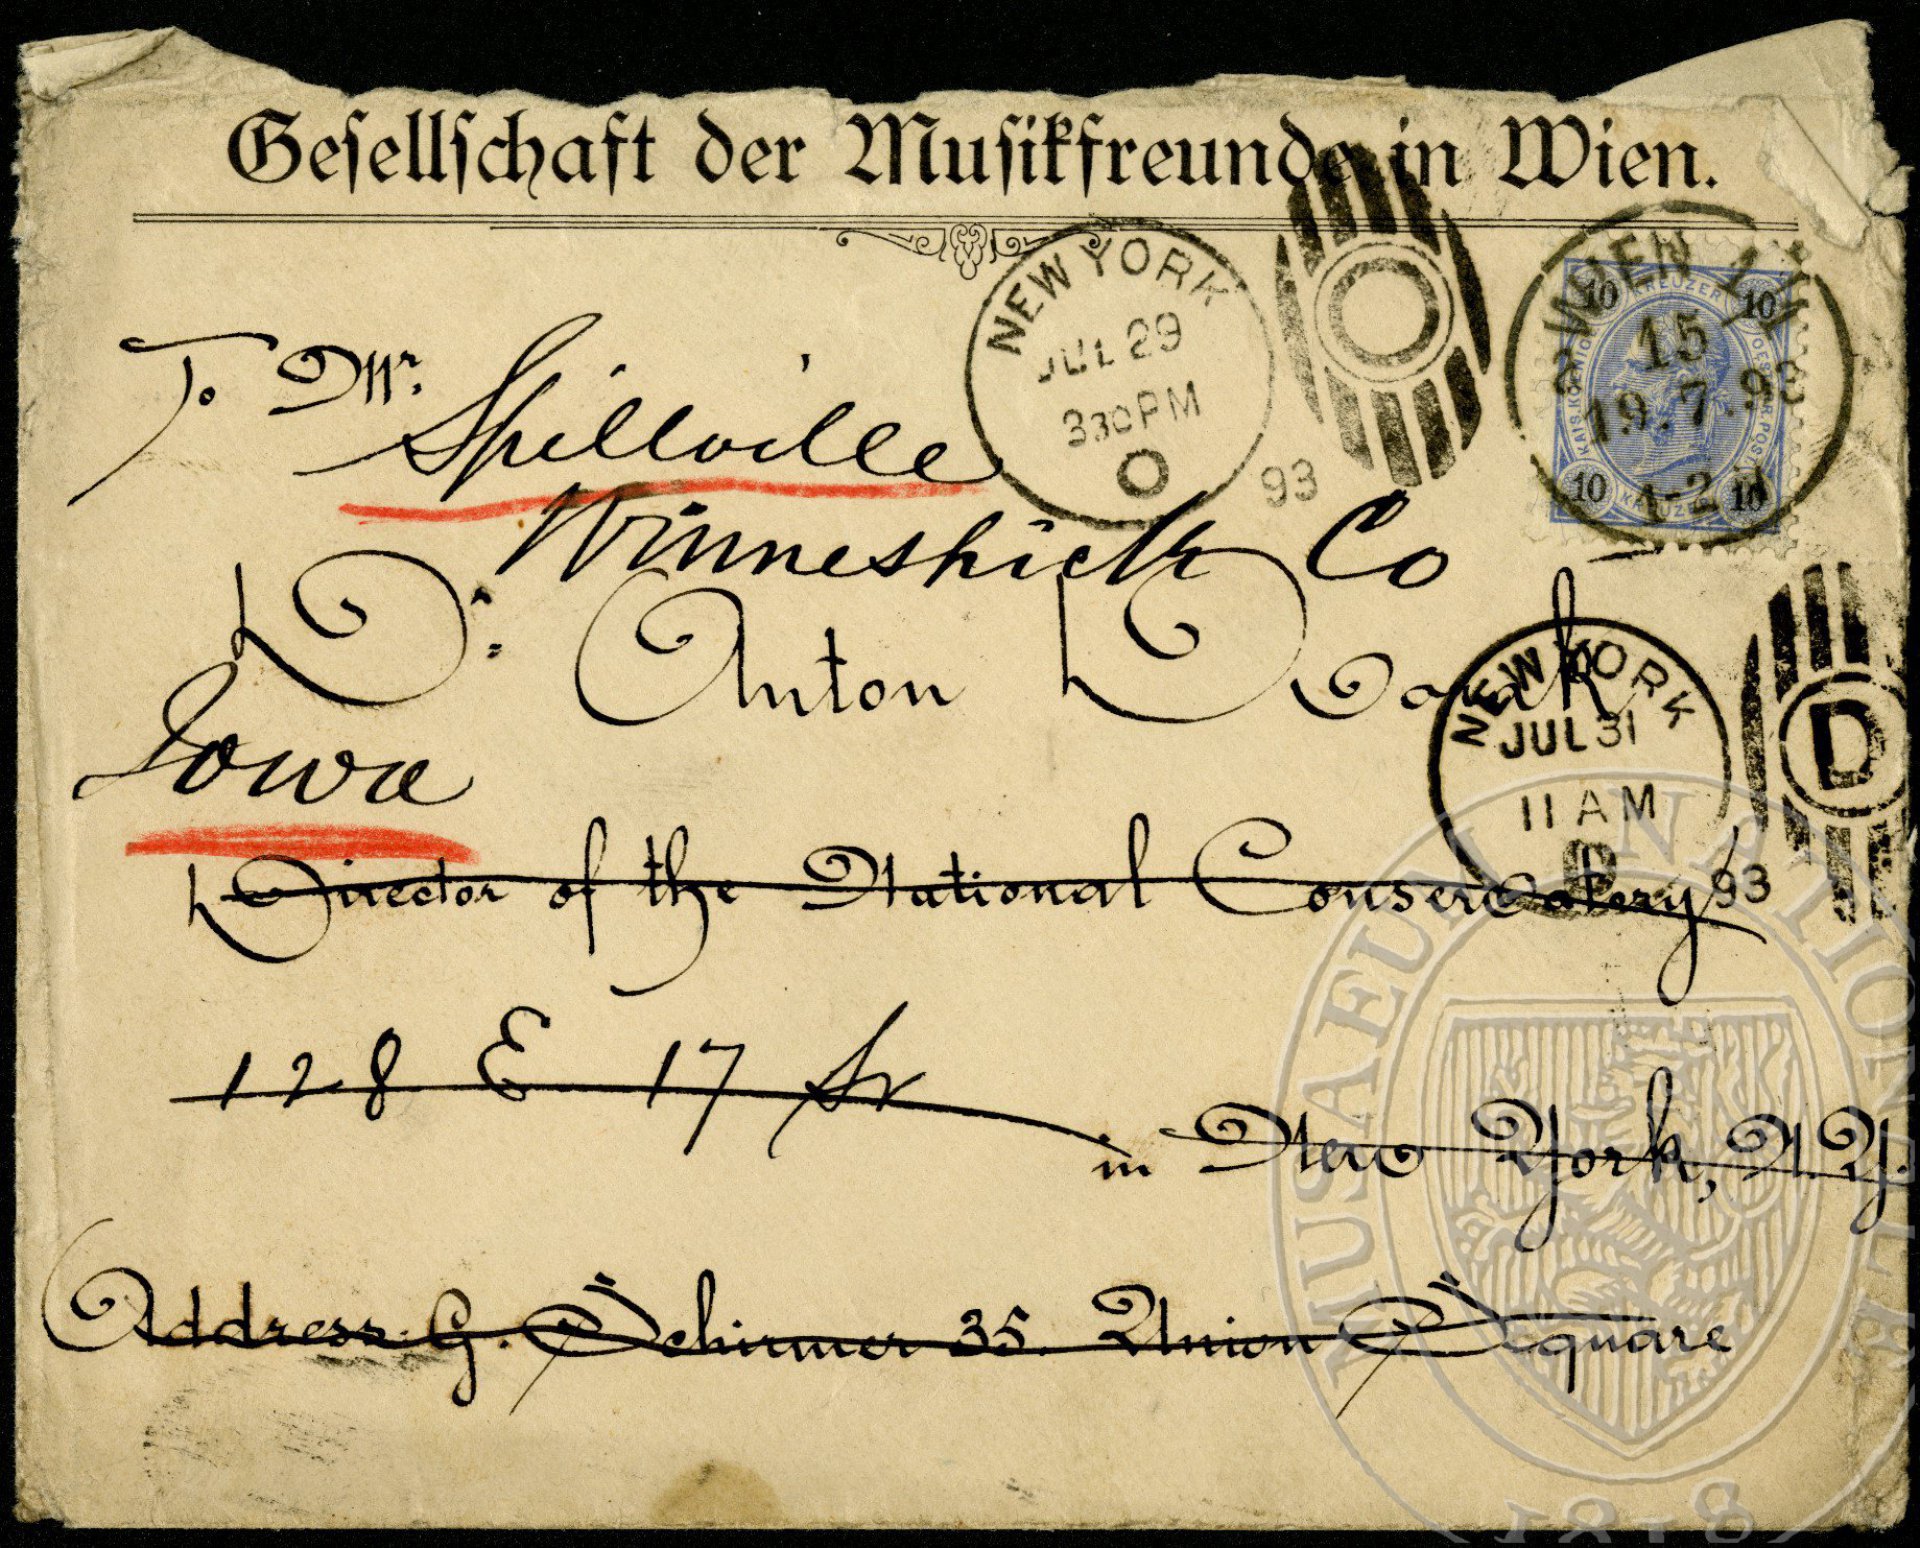 Gesellschaft der Musikfreunde in Wien.
NEW YORK
JUL 29
330 PM
O
93
WIEN
15
19.7.93
10 KREUZER 10
10 KREUZER 10
To Mr.
Spillville
Winneshiek Co
Dr. Anton Dvorak
Iowa
NEW YORK
JUL 31
11 AM
D
93
D
Director of the National Conservatory
128 E 17 St
in New York, N.Y.
Address: G. Schirmer 35. Union Square
MUSAEUM NATIONALE
1818